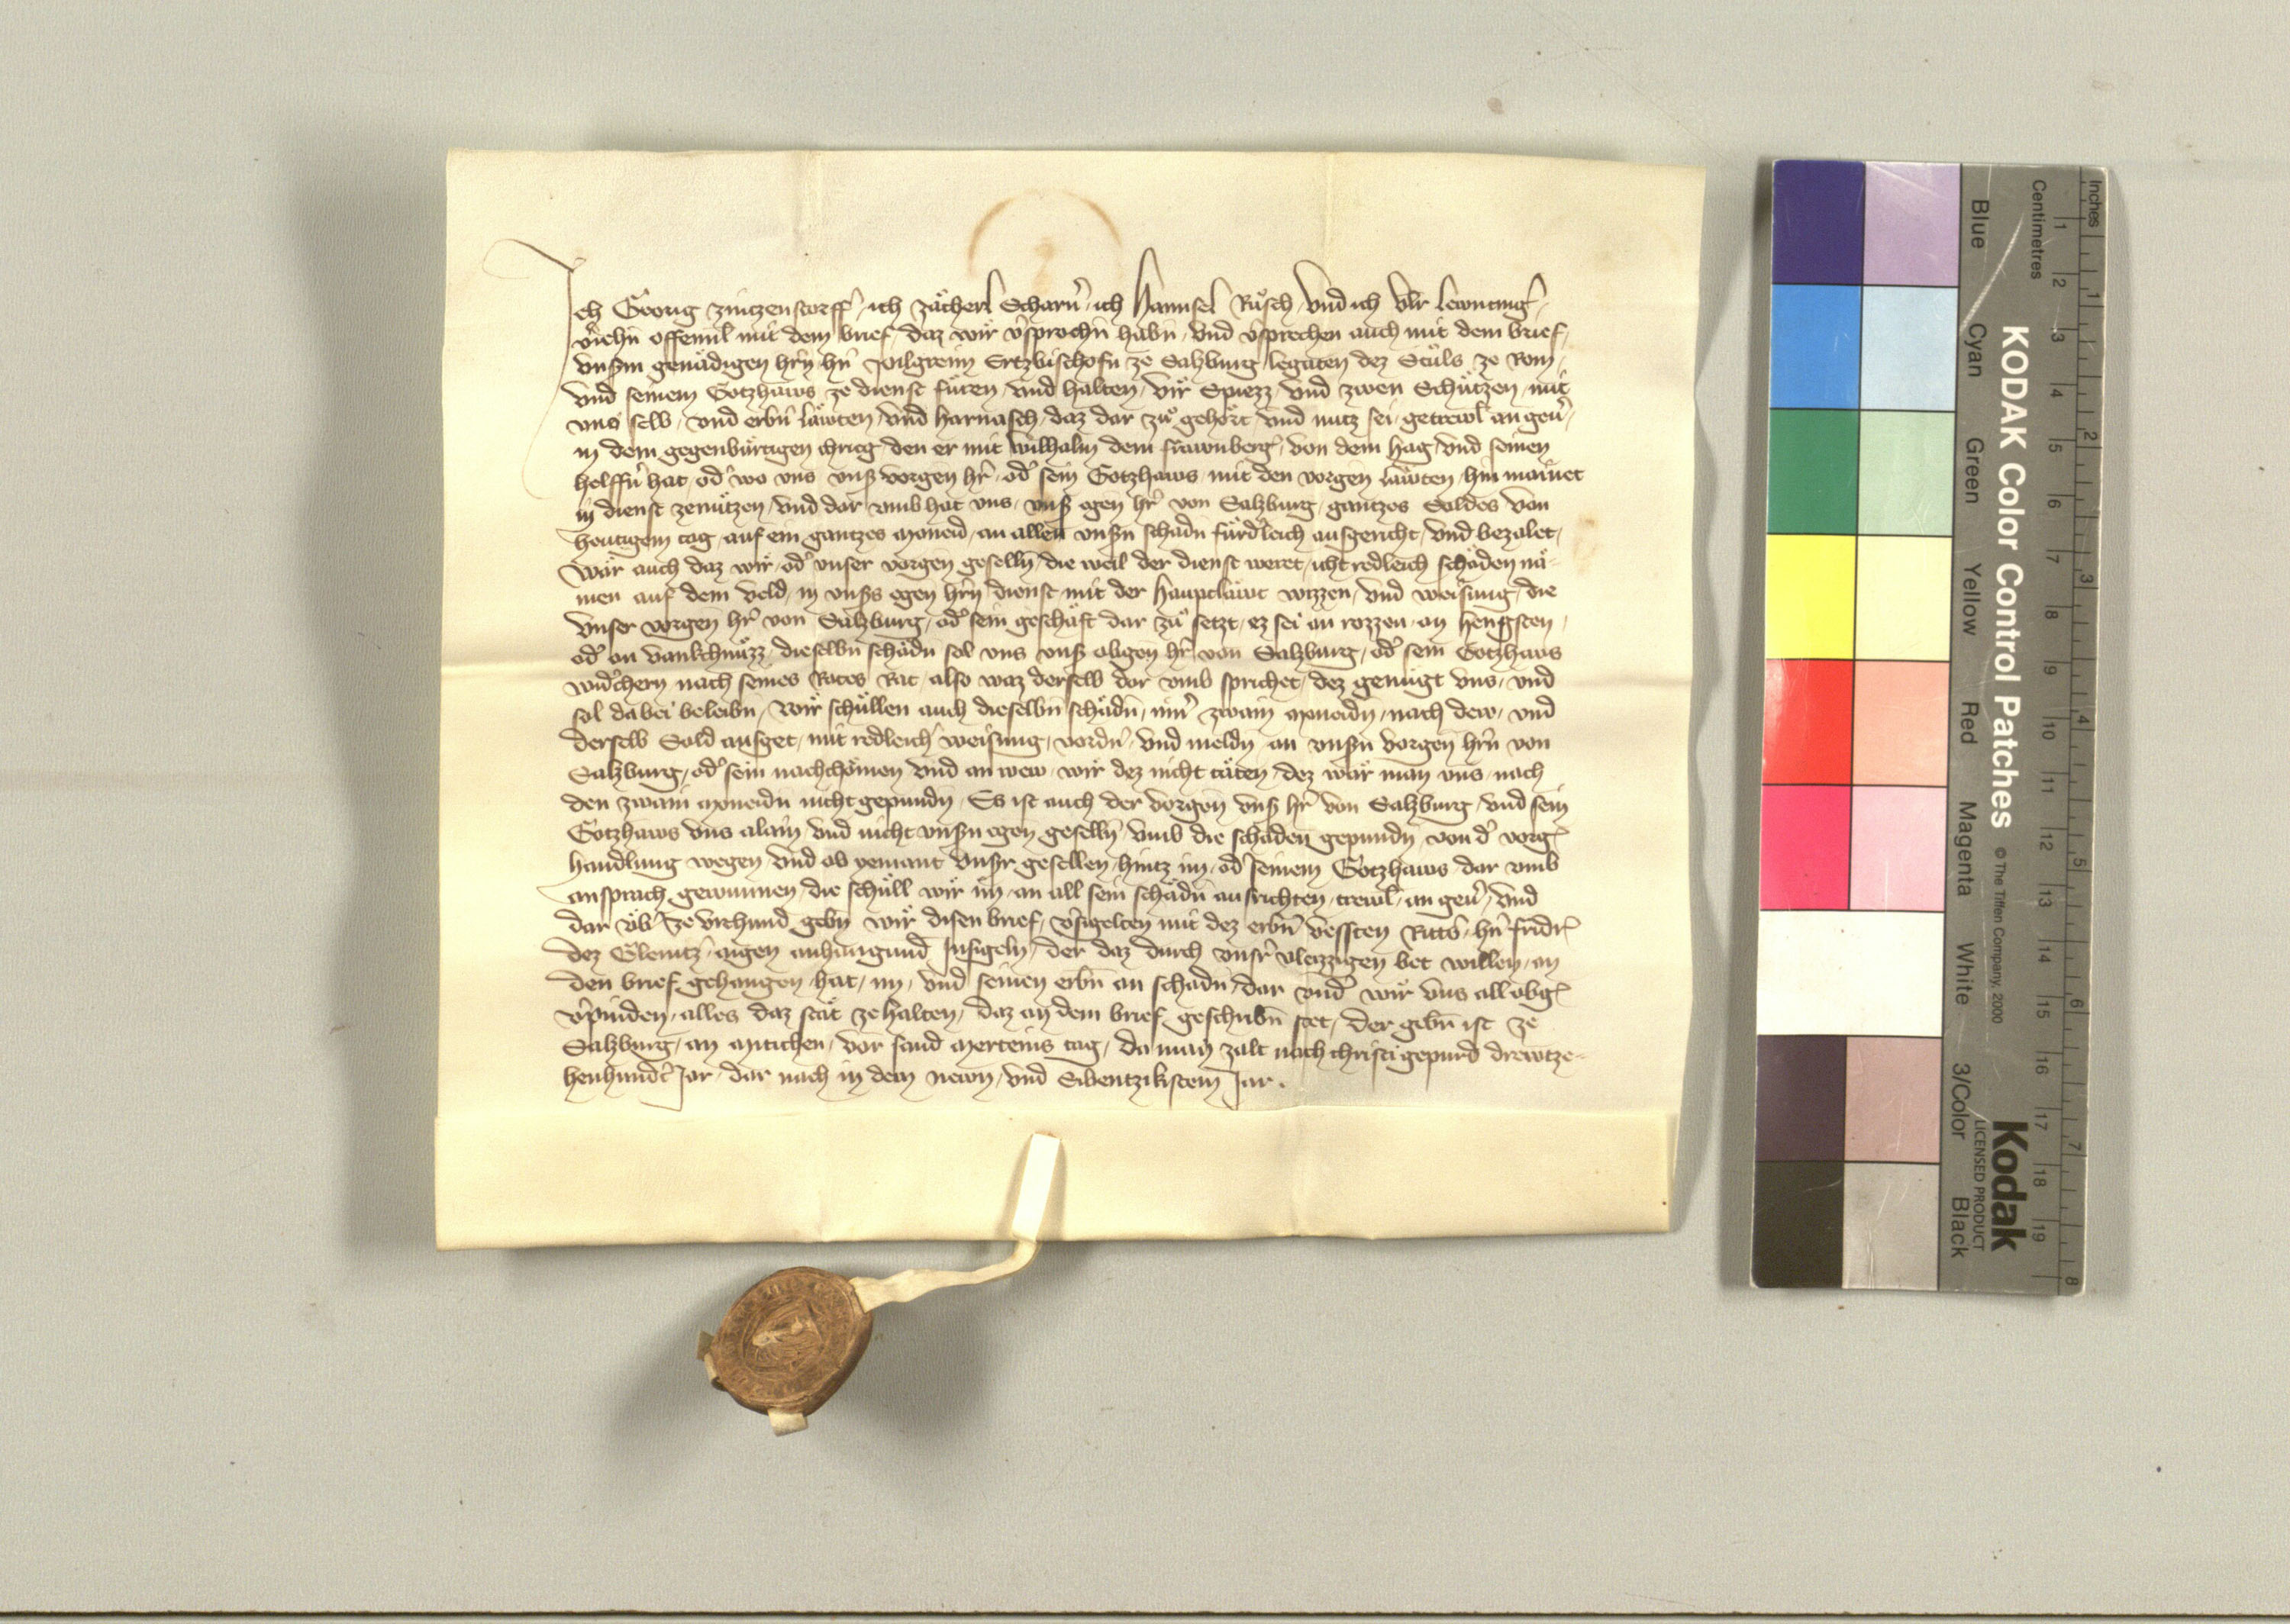 Ich Georg Zinczenstorff̾ ich Zächerl Scharn̾ ich Hannsel Rüsch vnd ich Vlr̾
v̾iehn̄ offennl̄ mit dem brief daz wir v̾sprochn̄ habn̄ vnd v̾sprechen auch mit dem brief
vnsm̄ genädigen hr̄n hn̄ Pilgreim Ertzbischofn ze Salzburg legaten dez Stůls ze Rom
vnd seinem Gotzhaws ze dienst füren vnd halten vir Spiezz vnd zwen Schützen mit
vns selb vnd erbn̄ läwten vnd harnasch daz dar zů gehört vnd nutz sei getrewl̄ an geu̾
in dem gegenbürtigen chrieg den er mit Wilhalm dem frawnberg̾ von dem Hag vnd seinen
helffn̄ hat od̾ wo vns vns̾ vorgen̄ hr̾ od̾ sein Gotzhaws mit den vorgen̄ läwten hin mainet
in dienst zenützen vnd dar vmb hat vns vns̾ egen̄ hr̾ von Salzburg gantzes Soldes von
heutigem tag auf ein gantzes moneid an allen vnsn̄ schadn̄ fürd̾leich ausgericht vnd bezalet
Wär auch daz wir od̾ vnser vorgen̄ geselln̄ die weil der dienst weret icht redleich schäden nä-
men auf dem veld in vnss̾ egen̄ hr̄n dienst mit der hauptläwt wizzen vnd weisung die
vnser vorgen̄ hr̾ von Salzburg od̾ sein geschäft dar zů setzt ez sei an rozzen an hengsten
od̾ an vankchnüzz dieselbn̄ schädn̄ sol vns vns̾ obgen̄ hr̾ von Salzburg od̾ sein Gotzhaws
wid̾chern nach seines Rates Rat also waz derselb dar vmb sprichet dez genügt vns vnd
sol da bei beleibn̄ wir schüllen auch dieselbn̄ schädn̄ inn̾ zwain moneidn̄ nach dew vnd
derselb Sold ausget mit redleich̾ weisung vordn̄ vnd meldn̄ an vnsn̄ vorgen̄ hr̄n von
Salzburg od̾ sein nachchömen vnd an wew wir dez nicht täten dez wär man vns nach
den zwain moneidn̄ nicht gepundn̄ Es ist auch der vorgen̄ vns̾ hr̾ von Salzburg vnd sein
Gotzhaws vns alain vnd nicht vnsn̄ egen̄ geselln̄ vmb die schäden gepundn̄ von d̾ vorg̾
handlung wegen vnd ob yemant vnsr̾ gesellen hintz im od̾ seinem Gotzhaws dar vmb
ansprach gewunnen die schüll wir im an all sein schädn̄ ausrichten trewl̄ an geu̾ vnd
dar üb̾ ze vrchund gebn̄ wir disen brief v̾sigelten mit dez erbn̄ vessten Ritt̾s hn̄ fridr̾
dez aigen anhangund̾ Insigeln der daz durch vnsr̾ vleizzigen bet willen an
den brief gehangen hat im vnd seinen erbn̄ an schadn̄ dar vnd̾ wir vns all obg̾
v̾pinden alles daz stät ze halten daz an dem brief geschribn̄ stet der gebn̄ ist ze
Salzburg an Mitichen vor sand Merteins tag do man zalt nach christi gepurd drewtze-
henhund̾t Jar dar nach in dem newn vnd Sibentzikistem Jar.
KODAK Color Control Patches © The Tiffen Company, 2000
Kodak
LICENSED PRODUCT
Blue Cyan Green Yellow Red Magenta White 3/Color Black
Inches 1 2 3 4 5 6 7 8
Centimetres 1 2 3 4 5 6 7 8 9 10 11 12 13 14 15 16 17 18 19